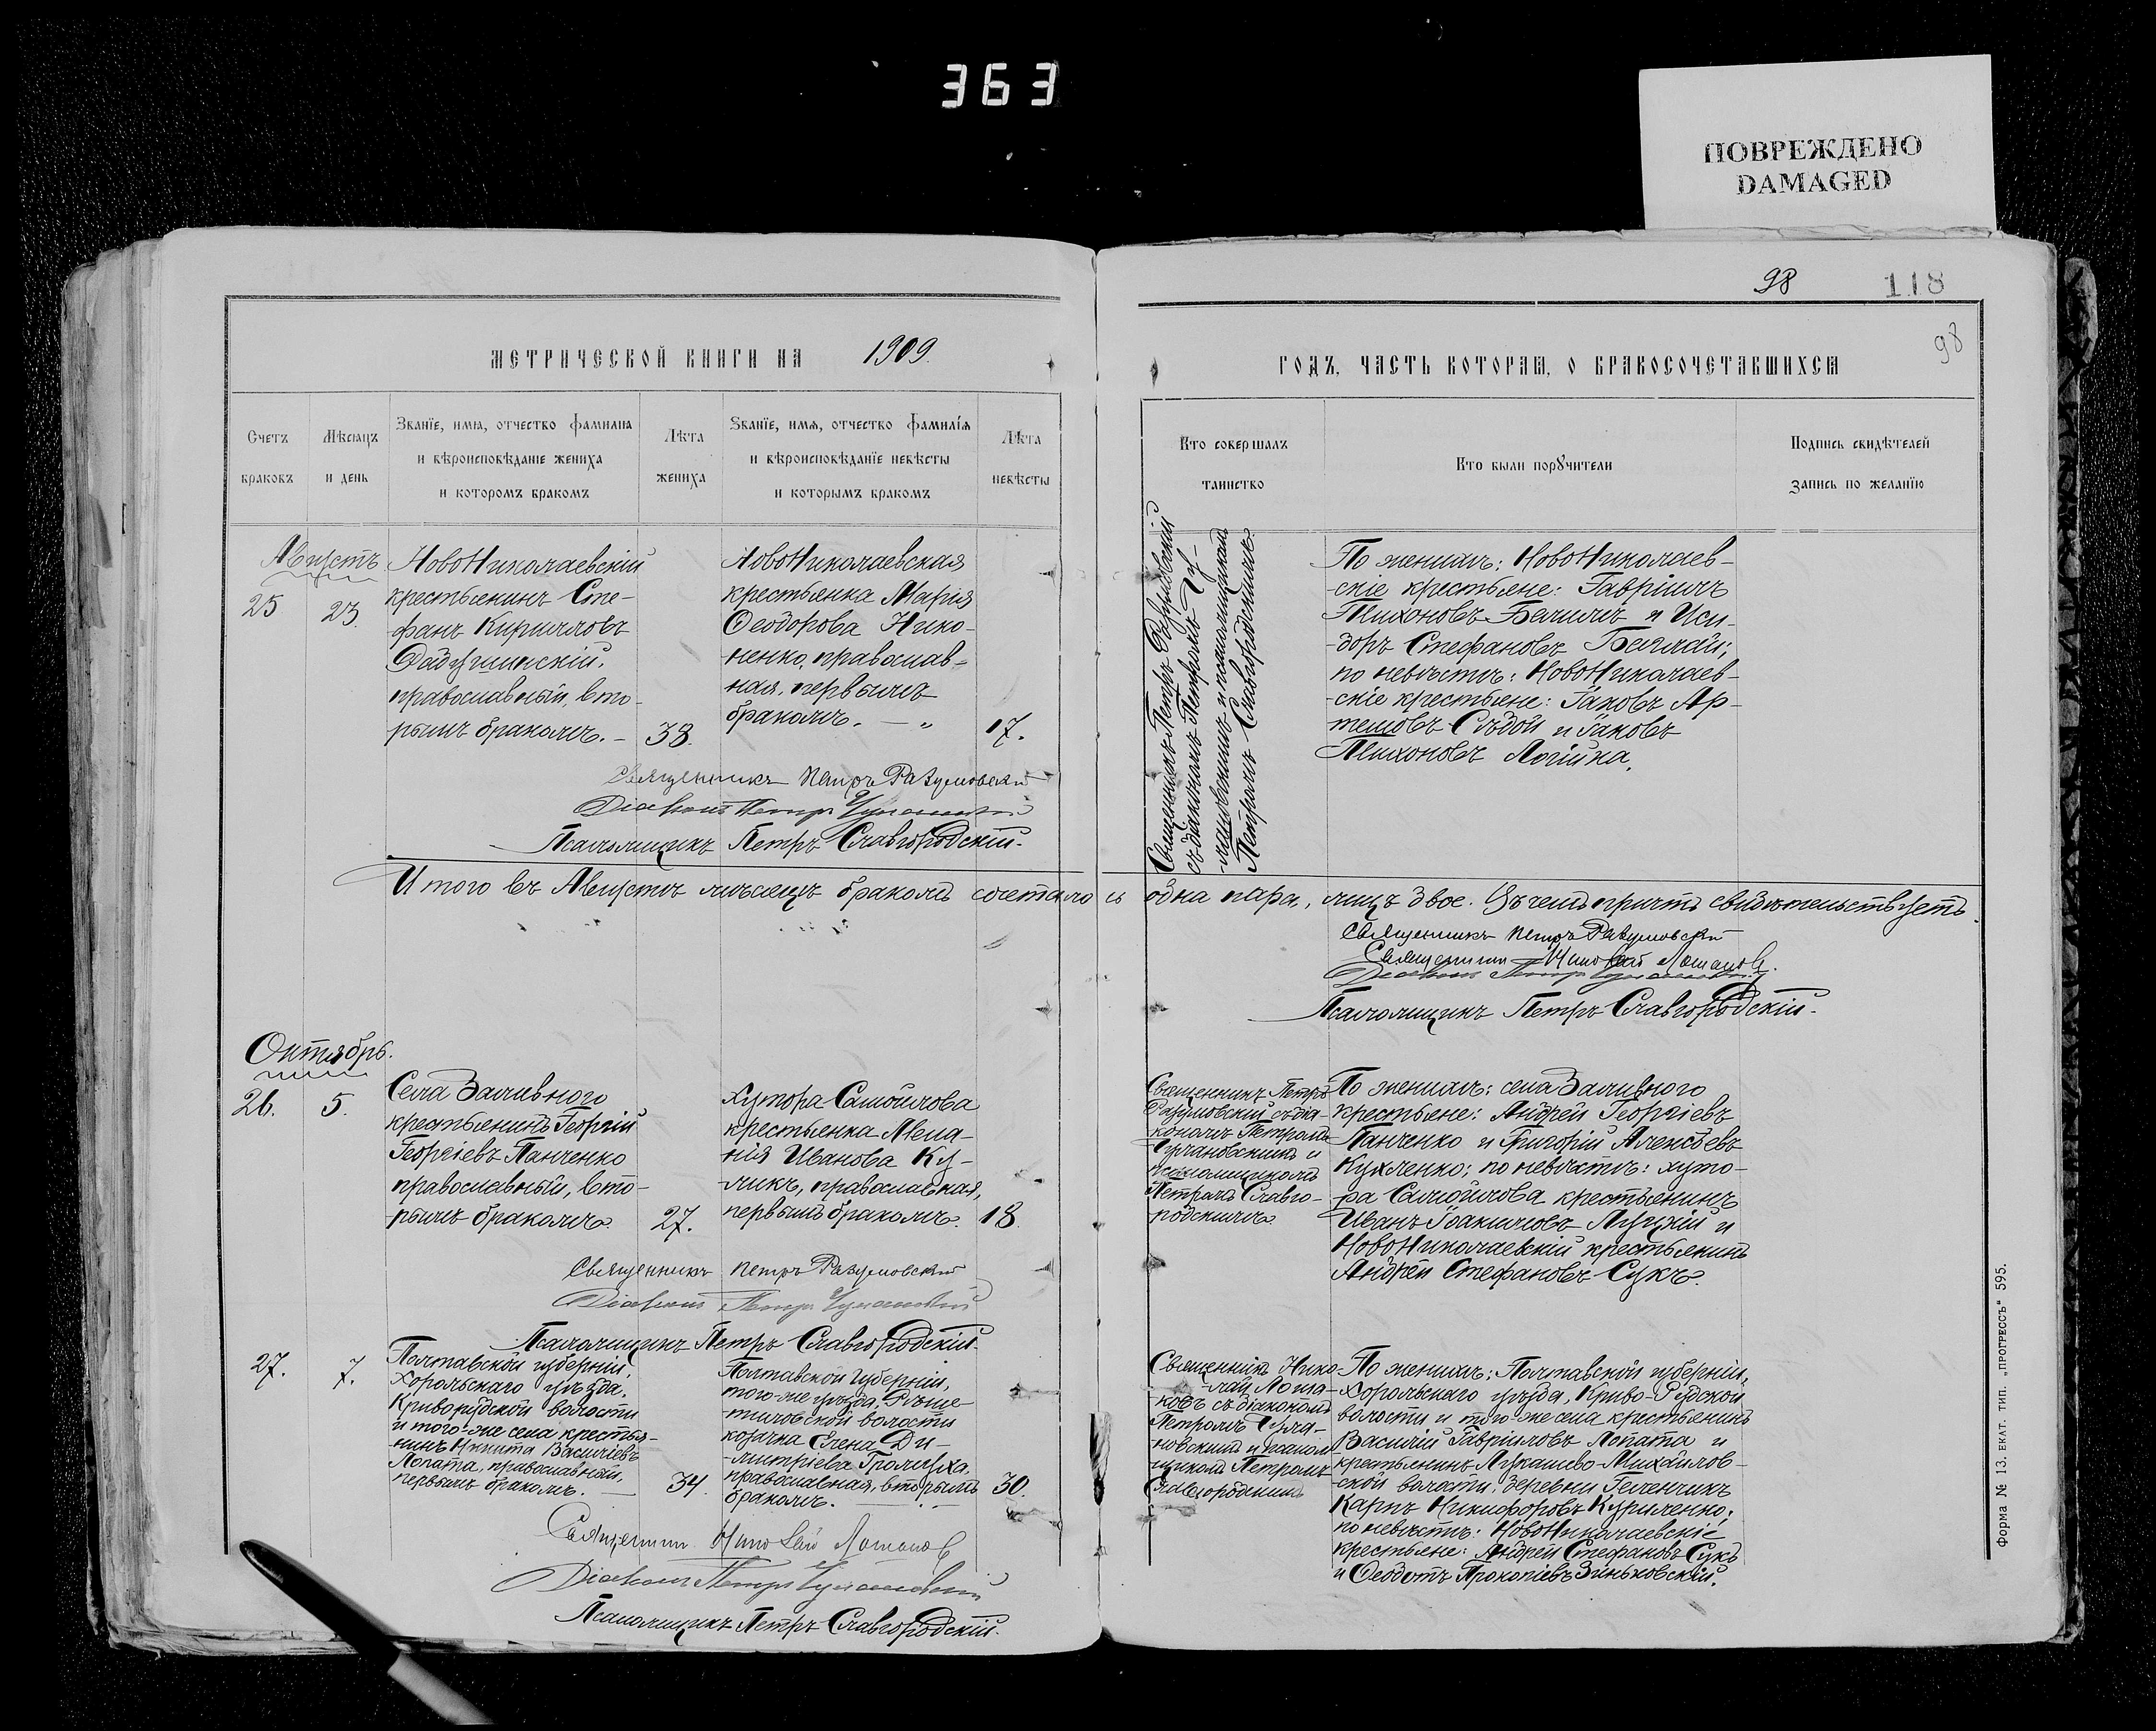 363
ПОВРЕЖДЕНО
DAMAGED
98
118
98
МЕТРИЧЕСКОЙ КНИГИ НА 1909.
ГОДЪ, ЧАСТЬ КОТОРАЯ, О БРАКОСОЧЕТАВШИХСЯ
Счетъ
браковъ
Мѣсяцъ
и день
Званїе, имя, отчество фамилиа
и вѣроисповѣданіе жениха
и которомъ бракомъ
Лѣта
жениха
Званїе, имя, отчество фамилїя
и вѣроисповѣданїе невѣсты
и которымъ бракомъ
Лѣта
невѣсты
Кто совершалъ
таинство
Кто были поручители
Подпись свидѣтелей
запись по желанїю
Августъ
25
23.
НовоНиколаевскій
крестьянинъ Сте-
фанъ Кирилловъ
православный, вто-
рымъ бракомъ. –
38.
НовоНиколаевская
крестьянка Марія
Ѳеодорова Нико-
ненко, православ-
ная, первымъ
бракомъ. — "
17.
Священникъ Петръ Разумовскій
съ діакономъ Петромъ Чу-
мановскимъ и псаломщикомъ
Петромъ Славгородскимъ.
По женихѣ: НовоНиколаев-
-скіе крестьяне: Гавріилъ
Тихоновъ и Иси-
-доръ Стефановъ
по невѣстѣ: НовоНиколаев-
-скіе крестьяне: Іаковъ Ар-
темовъ Сѣдой и Іаковъ
Тихоновъ
Священникъ Петръ Разумовскій
Діаконъ Петръ
Псаломщикъ Петръ Славгородскій.
Итого въ Августѣ мѣсяцѣ бракомъ сочеталось одна пара, лицъ двое. Въ чемъ причтъ свидѣтельствуетъ.
Священникъ Петръ Разумовскій
Священникъ Николай
Діаконъ Петръ
Псаломщикъ Петръ Славгородскій.
Октябрь.
26.
5.
Села Заливного
крестьянинъ Георгій
Георгіевъ Панченко
православный, вто-
рымъ бракомъ.
27.
хутора Самойлова
крестьянка Мела-
нія Иванова Ку-
ликъ, православная,
первымъ бракомъ.
18.
Священникъ Петръ
Разумовскій съ діа-
кономъ Петромъ
псаломщикомъ
Петромъ Славго-
родскимъ
По женихѣ: села Заливного
крестьяне: Андрей Георгіевъ
Панченко и Григорій Алексѣевъ
по невѣстѣ: хуто-
ра Самойлова крестьянинъ
Иванъ Іоакимовъ Луцкій и
НовоНиколаевскій крестьянинъ
Андрей Стефановъ Сукъ.
Священникъ Петръ Разумовскій
Діаконъ Петръ
Псаломщикъ Петръ Славгородскій.
27.
7.
Полтавской губерніи,
Хорольскаго уѣзда,
Криворудской волости
и того-же села крестья-
нинъ Никита Василіевъ
Лопата, православный,
первымъ бракомъ. —
34.
Полтавской губерніи,
того-же уѣзда, Рѣше-
тиловской волости
козачка Елена Ди-
митріева
православная, вторымъ
бракомъ.
30.
Священникъ Нико-
лай
съ діакономъ
Петромъ
и псалом-
щикомъ Петромъ
Славгородскимъ
По женихѣ: Полтавской губерніи,
Хорольскаго уѣзда, Криво-Рудской
волости и того-же села крестьянинъ
Василій Гавріиловъ Лопата и
крестьянинъ Лукашево-Михайлов-
-ской волости, деревни
Карпъ Никифоровъ Куриленко;
по невѣстѣ: НовоНиколаевскіе
крестьяне: Андрей Стефановъ Сукъ
и Ѳеодотъ Прокопіевъ Зиньковскій.
Священникъ Николай
Діаконъ Петръ
Псаломщикъ Петръ Славгородскій.
Форма № 13. ЕКАТ. ТИП. „ПРОГРЕССЪ“ 595.